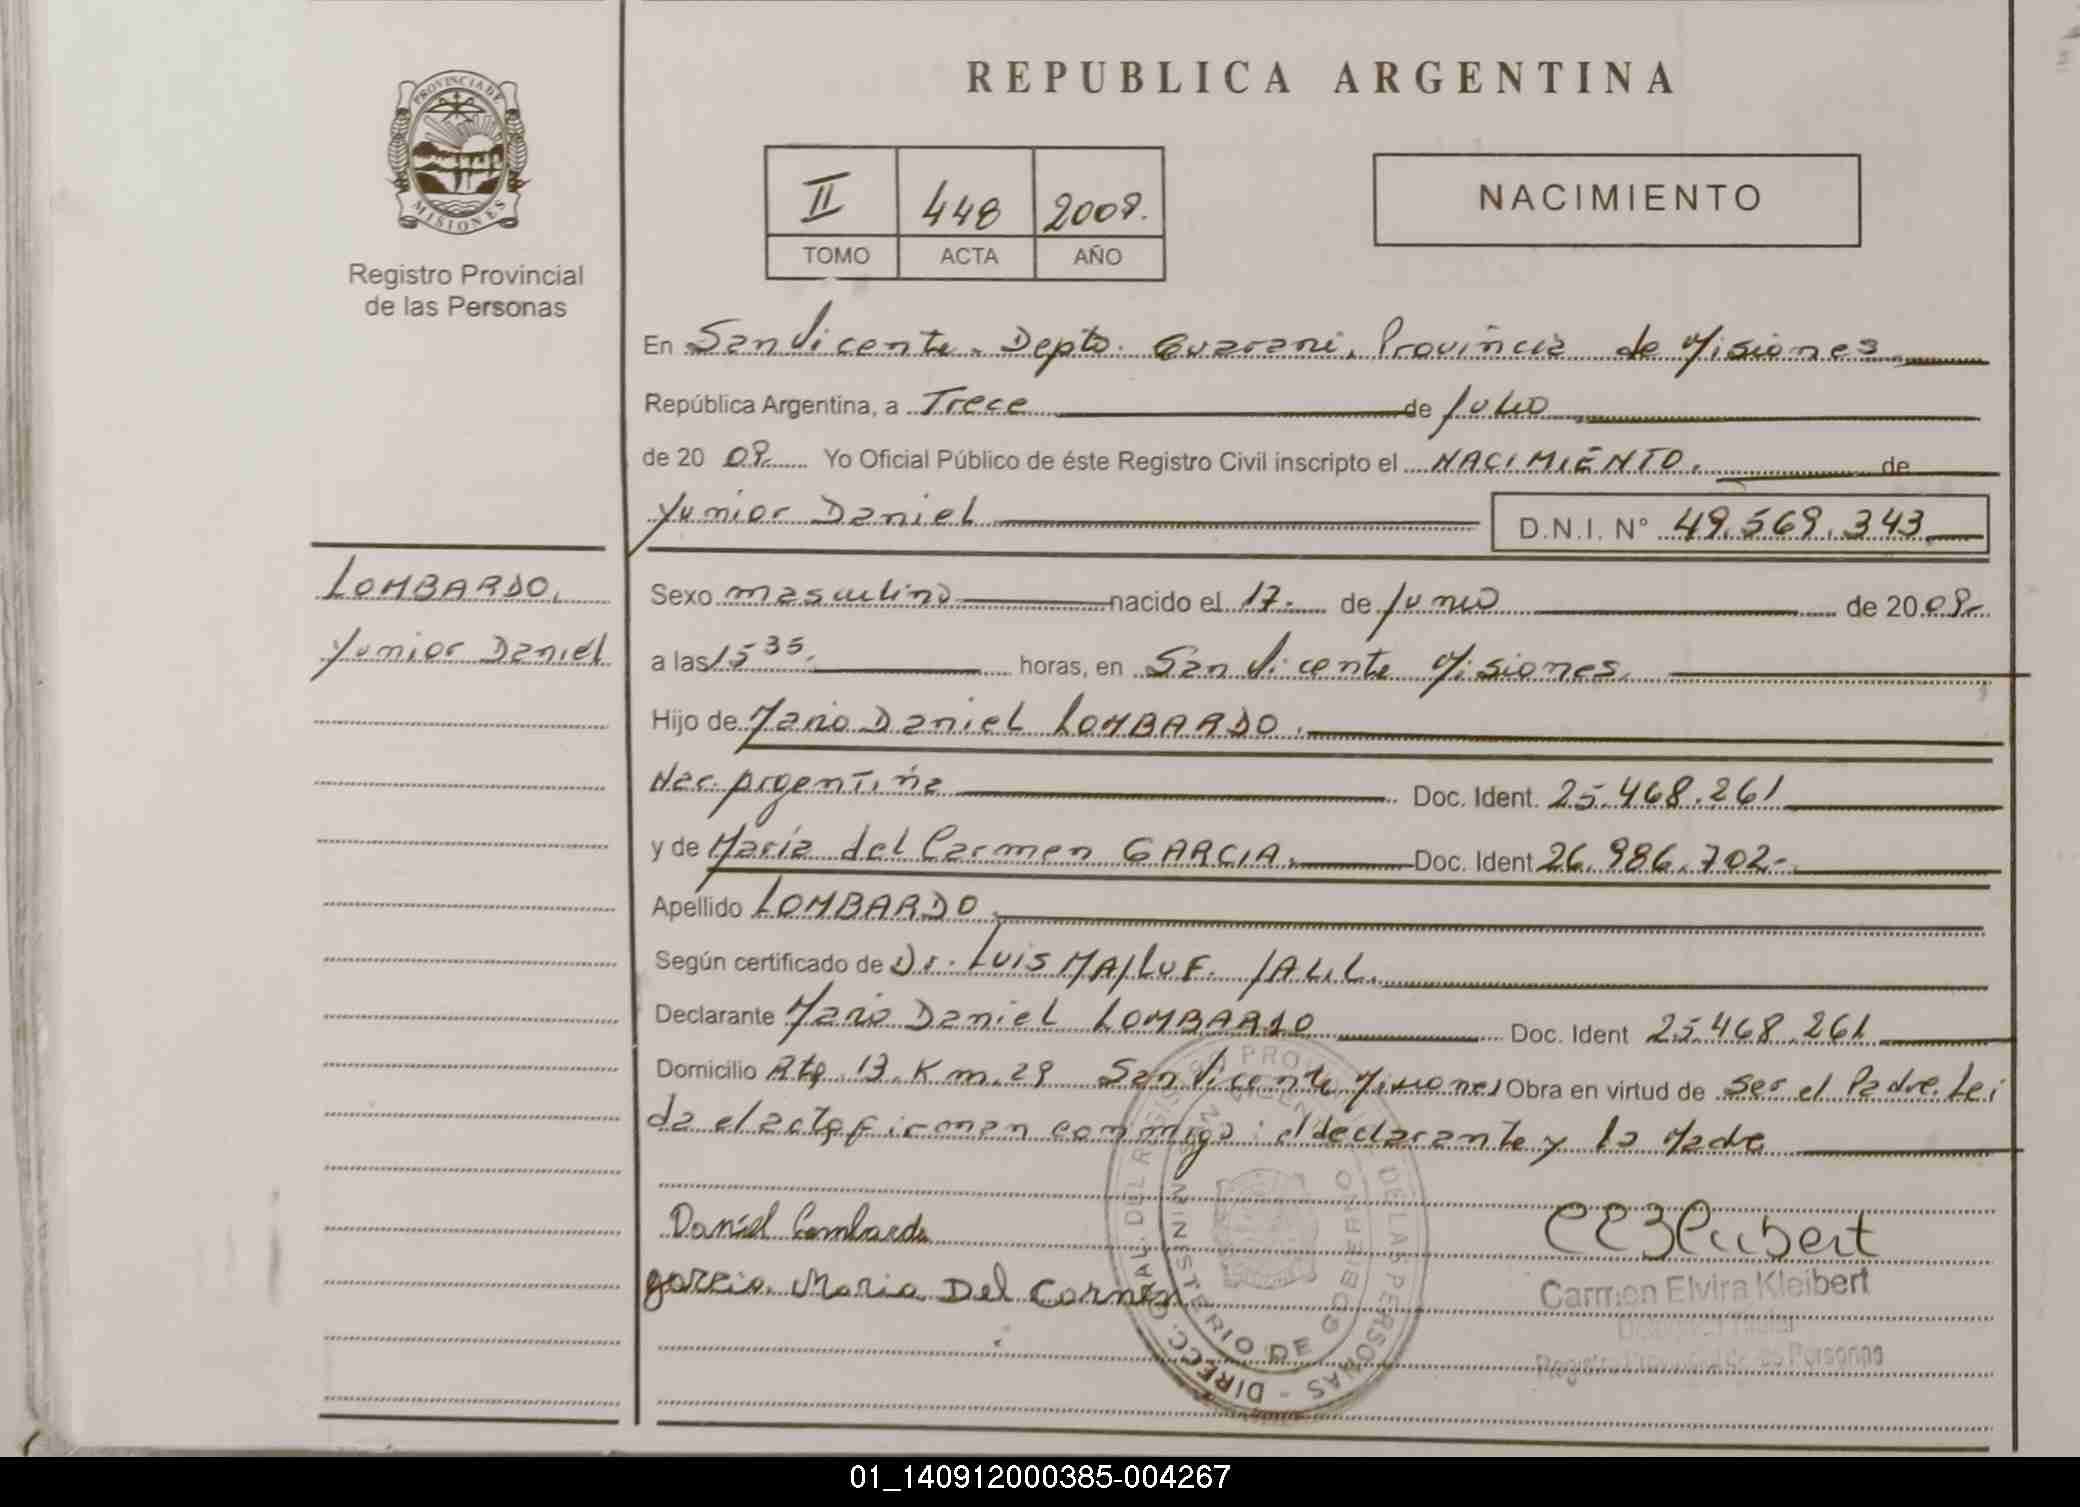 REPUBLICA ARGENTINA
PROVINCIA DE
MISIONES
Registro Provincial
de las Personas
II 448 2009.
TOMO ACTA AÑO
NACIMIENTO
En San Vicente. Depto. Guarani, Provincia de Misiones
República Argentina, a Trece de Julio
de 20 09. Yo Oficial Público de éste Registro Civil inscripto el NACIMIENTO. de
Yunior Daniel D.N.I. N° 49.569.343
LOMBARDO.
Yunior Daniel
Sexo masculino nacido el 17. de Junio de 20 09-
a las 15 35. horas, en San Vicente Misiones.
Hijo de Mario Daniel LOMBARDO.
Nac. Argentina Doc. Ident. 25.468.261
y de María del Carmen GARCIA. Doc. Ident 26.986.702-
Apellido LOMBARDO.
Según certificado de Dr. Luis MAJLUF. JALIL.
Declarante Mario Daniel LOMBARDO Doc. Ident 25.468.261
Domicilio Rta 13. Km. 29 San Vicente Misiones Obra en virtud de ser el Padre. Lei
da el acta firman conmigo: el declarante y la Madre
Daniel Lombardo
garcia Maria Del Carmen
CEKleibert
Carmen Elvira Kleibert
Registro Provincial de las Personas
DIRECC. GRAL. DEL REGISTRO PROVINCIAL DE LAS PERSONAS -
MINISTERIO DE GOBIERNO
SAN VICENTE
01_140912000385-004267